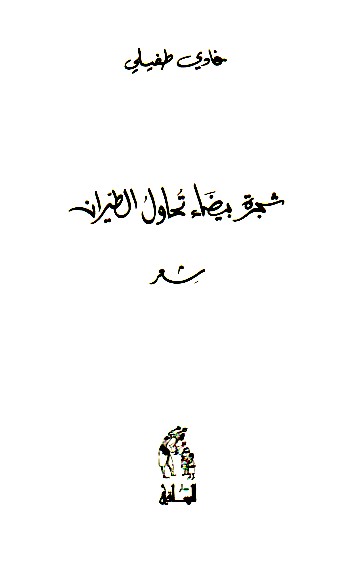 فادي طفيلي
شجرة بيضَاء تُحاولُ الطيران
شِعر